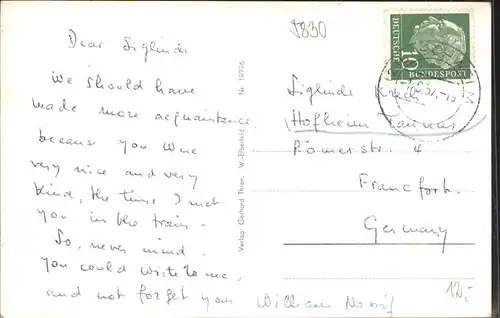 5830
Dear Siglinde
We should have
made more acquaintance
because you were
very nice and very
kind, the time I met
you in the train -
So, never mind.
You could write to me,
and not forget your
William
Verlag: Gerhard Thien, W.-Elberfeld Nr. 19736
DEUTSCHE BUNDESPOST
10
Siglinde
Hofheim Taunus
Römerstr. 4
Francfort.
Germany
12,-